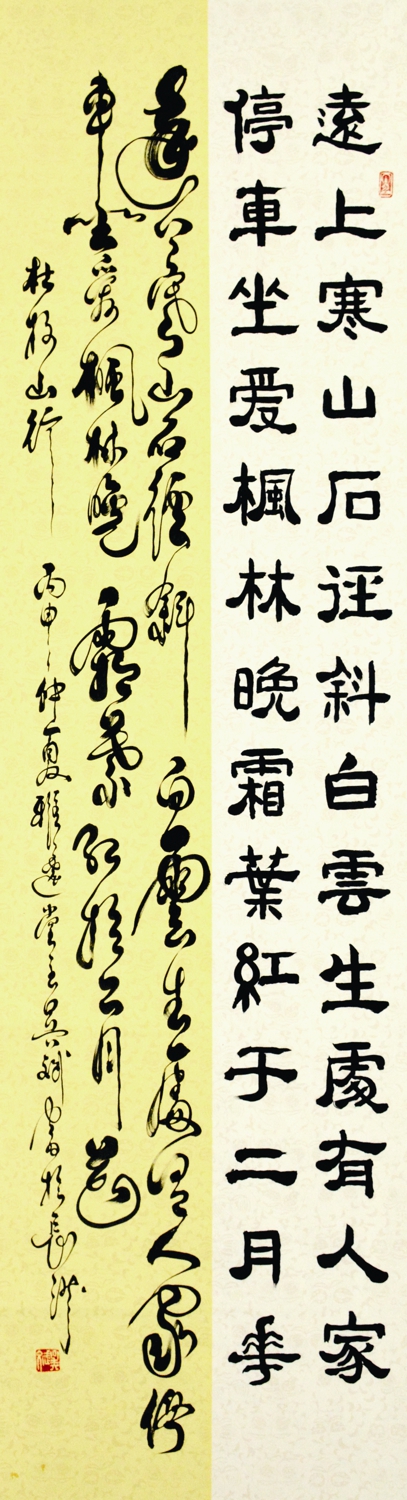 遠上寒山石徑斜白雲生處有人家
停車坐爱楓林晚霜葉紅于二月華
遠上寒山石徑斜白雲生處有人家停
車坐爱楓林晚霜葉紅於二月花
杜牧山行丙申仲夏雅逵堂主吴斌書於長沙